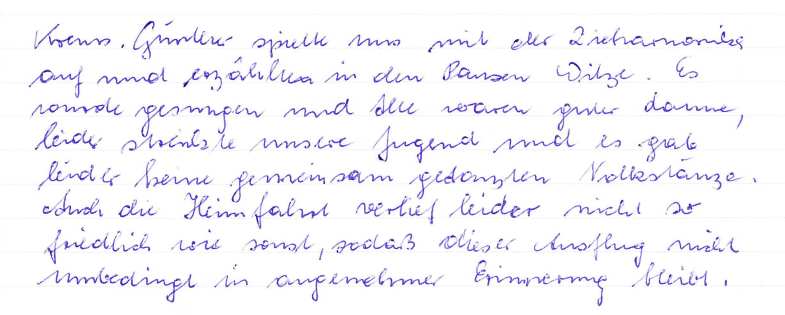 Krems. Günther spielte uns mit der Ziehharmonika
auf und erzählte in den Pausen Witze. Es
wurde gesungen und alle waren guter Laune,
leider streikte unsere Jugend und es gab
leider keine gemeinsam getanzten Volkstänze.
Auch die Heimfahrt verlief leider nicht so
friedlich wie sonst, sodaß dieser Ausflug nicht
unbedingt in angenehmer Erinnerung bleibt.